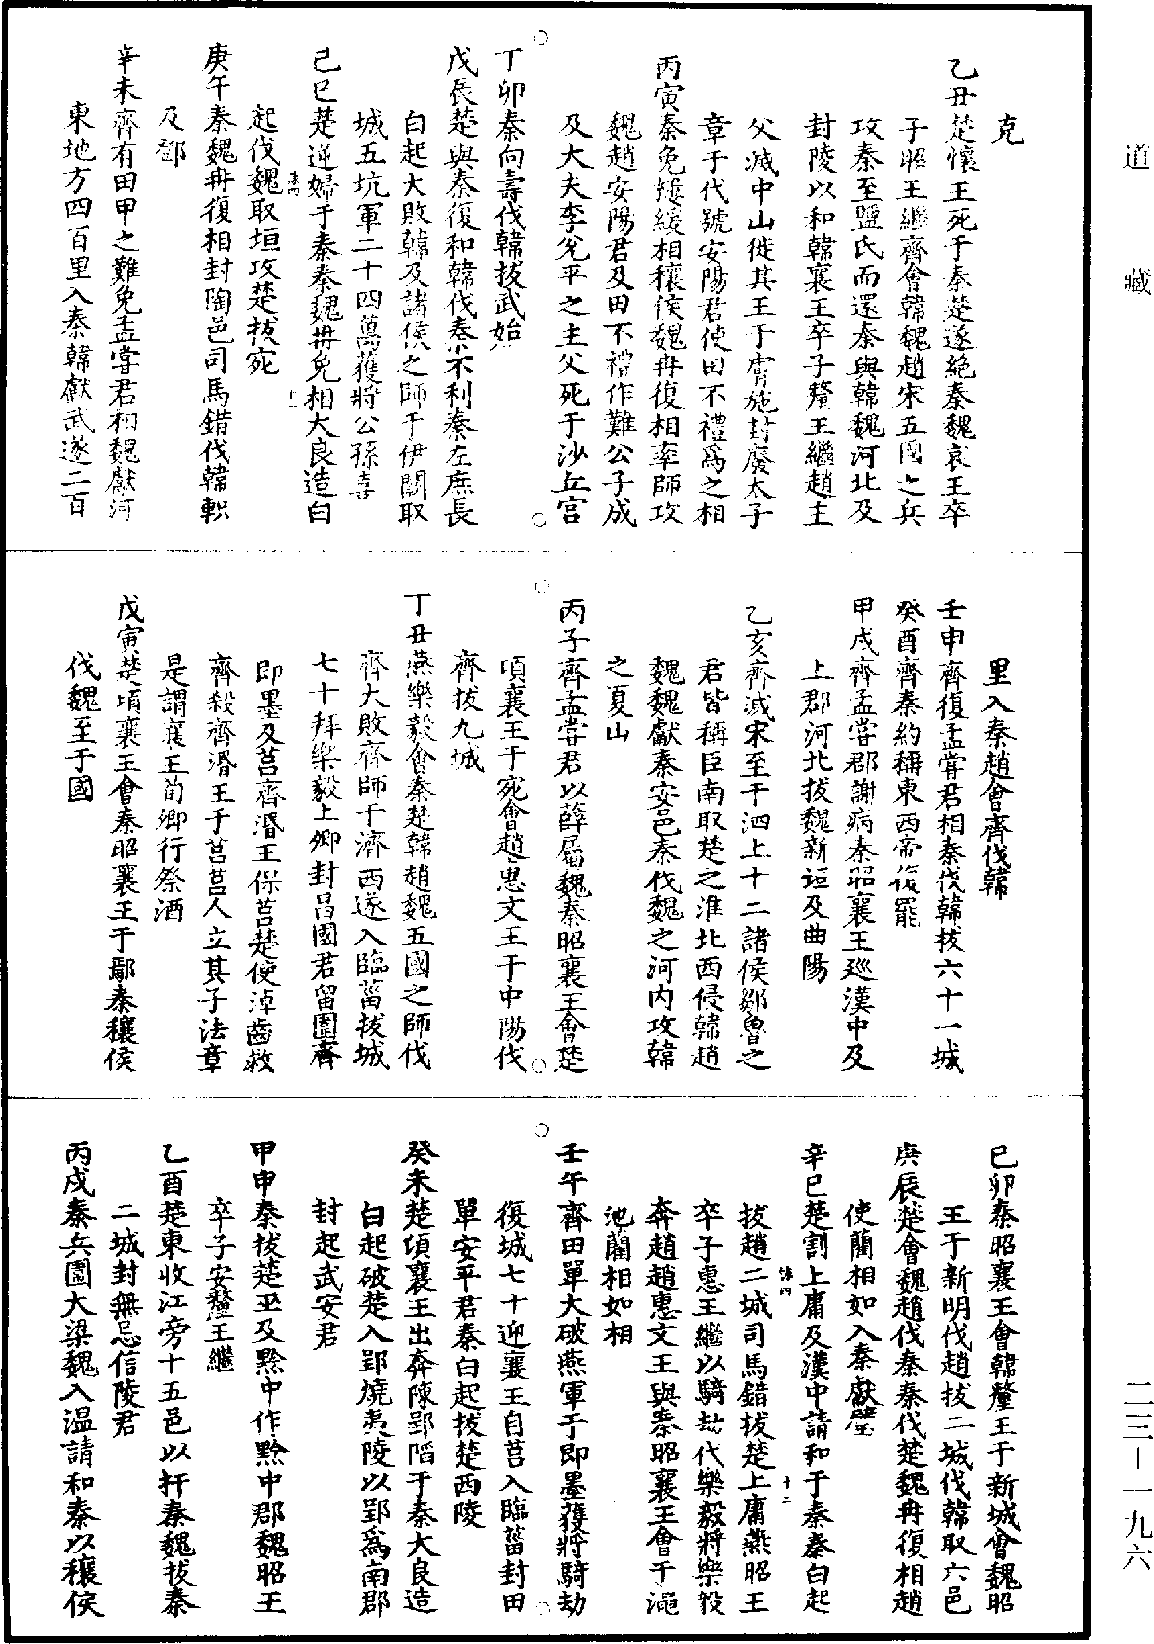 道藏
克
乙丑楚懷王死于秦楚遂絕秦魏哀王卒
子昭王繼齊會韓魏趙宋五國之兵
攻秦至鹽氏而還秦與韓魏河北及
封陵以和韓襄王卒子釐王繼趙主
父滅中山徙其王于膚施封廢太子
章于代號安陽君使田不禮爲之相
丙寅秦免摟緩相穰侯魏冉復相率師攻
魏趙安陽君及田不禮作難公子成
及大夫李兌平之主父死于沙丘宮
丁卯秦向壽伐韓拔武始
戊辰楚與秦復和韓伐秦不利秦左庶長
白起大敗韓及諸侯之師于伊闕取
城五坑軍二十四萬獲將公孫喜
己巳楚逆婦于秦秦魏冉免相大良造白
起伐魏取垣攻楚拔宛
庚午秦魏冉復相封陶邑司馬錯伐韓軹
及鄧
辛未齊有田甲之難免孟嘗君相魏獻河
東地方四百里入秦韓獻武遂二百
里入秦趙會齊伐韓
壬申齊復孟嘗君相秦伐韓拔六十一城
癸酉齊秦約稱東西帝復罷
甲戌齊孟嘗郡謝病秦昭襄王巡漢中及
上郡河北拔魏新垣及曲陽
乙亥齊滅宋至于泗上十二諸侯鄒魯之
君皆稱臣南取楚之淮北西侵韓趙
魏魏獻秦安邑秦伐魏之河内攻韓
之夏山
丙子齊孟嘗君以薛屬魏秦昭襄王會楚
頃襄王于宛會趙惠文王于中陽伐
齊拔九城
丁丑燕樂毅會秦楚韓趙魏五國之師伐
齊大敗齊師于濟西遂入臨菑拔城
七十拜樂毅上卿封昌國君留圍齊
即墨及莒齊湣王保莒楚使淖齒救
齊殺齊湣王于莒莒人立其子法章
是謂襄王荀卿行祭酒
戊寅楚頃襄王會秦昭襄王于鄢秦穰侯
伐魏至于國
己卯秦昭襄王會韓釐王于新城會魏昭
王于新明伐趙拔二城伐韓取六邑
庚辰楚會魏趙伐秦秦伐楚魏冉復相趙
使藺相如入秦獻璧
辛巳楚割上庸及漢中請和于秦秦白起
拔趙二城司馬錯拔楚上庸燕昭王
卒子惠王繼以騎劫代樂毅將樂毅
奔趙趙惠文王與秦昭襄王會于澠
池藺相如相
壬午齊田單大破燕軍于即墨獲將騎劫
復城七十迎襄王自莒入臨菑封田
單安平君秦白起拔楚西陵
癸未楚頃襄王出奔陳郢陷于秦大良造
白起破楚入郢燒夷陵以郢爲南郡
封起武安君
甲申秦拔楚巫及黔中作黔中郡魏昭王
卒子安釐王繼
乙酉楚東收江旁十五邑以扞秦魏拔秦
二城封無忌信陵君
丙戌秦兵圍大梁魏入温請和秦以穰侯
二三—一九六